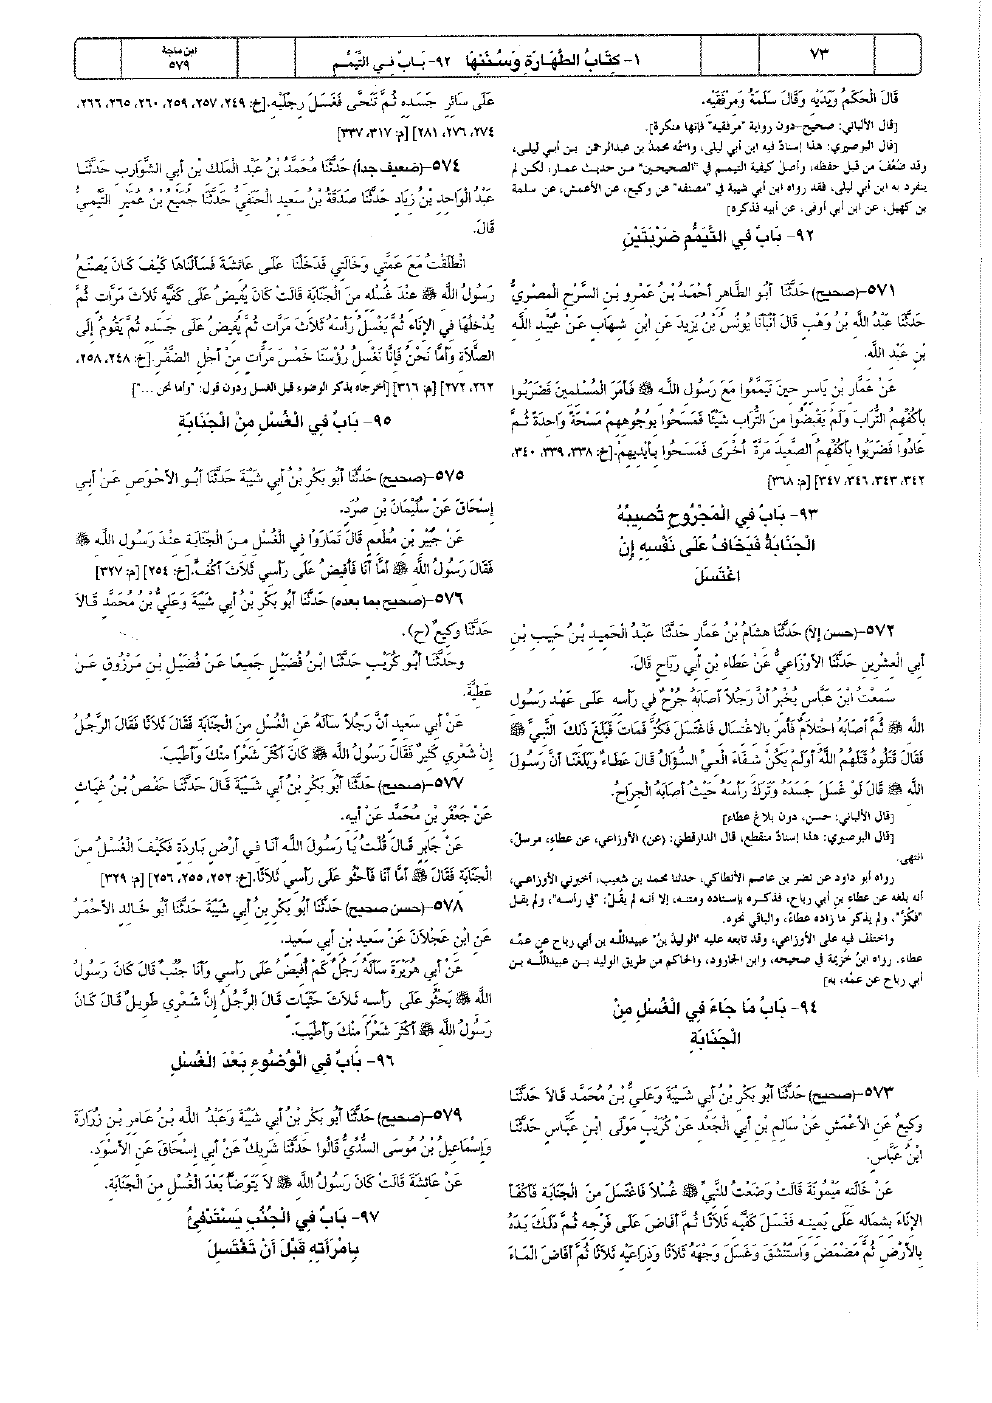 ٧٣
١- كِتَابُ الطَّهَارَةِ وَسُنَنِهَا ٩٢- بَابٌ فِي التَّيَمُّمِ
ابن ماجة
٥٧٩
قَالَ الْحَكَمُ وَيَدَيْهِ وَقَالَ سَلَمَةُ وَمِرْفَقَيْهِ.
[قال الألباني: صحيح-دون رواية "مرفقيه" فإنها منكرة].
[قال البوصيري: هذا إسنادٌ فيه ابن أبي ليلى، واسمُه محمدُ بن عبدالرحمن بن أبي ليلى،
وقد ضُعِّفَ من قبل حفظه، وأصل كيفية التيمم في "الصحيحين" من حديث عمار؛ لكن لم
ينفرد به ابن أبي ليلى، فقد رواه ابن أبي شيبة في "مصنفه" عن وكيع، عن الأعمش، عن سلمة
بن كهيل، عن ابن أبي أوفى، عن أبيه فذكره]
٩٢- بَابٌ فِي التَّيَمُّمِ ضَرْبَتَيْنِ
٥٧١-(صحيح) حَدَّثَنَا أَبُو الطَّاهِرِ أَحْمَدُ بْنُ عَمْرِو بْنِ السَّرْحِ الْمِصْرِيُّ
حَدَّثَنَا عَبْدُ اللَّهِ بْنُ وَهْبٍ قَالَ أَنْبَأَنَا يُونُسُ بْنُ يَزِيدَ عَنِ ابْنِ شِهَابٍ عَنْ عُبَيْدِ اللَّهِ
بْنِ عَبْدِ اللَّهِ.
عَنْ عَمَّارِ بْنِ يَاسِرٍ حِينَ تَيَمَّمُوا مَعَ رَسُولِ اللَّهِ ﷺ فَأَمَرَ الْمُسْلِمِينَ فَضَرَبُوا
بِأَكُفِّهِمُ التُّرَابَ وَلَمْ يَقْبِضُوا مِنَ التُّرَابِ شَيْئًا فَمَسَحُوا بِوُجُوهِهِمْ مَسْحَةً وَاحِدَةً ثُمَّ
عَادُوا فَضَرَبُوا بِأَكُفِّهِمُ الصَّعِيدَ مَرَّةً أُخْرَى فَمَسَحُوا بِأَيْدِيهِمْ.[خ: ٣٣٨، ٣٣٩، ٣٤٠،
٣٤٢، ٣٤٣، ٣٤٦، ٣٤٧] [م: ٣٦٨]
٩٣- بَابٌ فِي الْمَجْرُوحِ تُصِيبُهُ
الْجَنَابَةُ فَيَخَافُ عَلَى نَفْسِهِ إِنْ
اغْتَسَلَ
٥٧٢-(حسن إلاّ) حَدَّثَنَا هِشَامُ بْنُ عَمَّارٍ حَدَّثَنَا عَبْدُ الْحَمِيدِ بْنُ حَبِيبِ بْنِ
أَبِي الْعِشْرِينَ حَدَّثَنَا الأَوْزَاعِيُّ عَنْ عَطَاءِ بْنِ أَبِي رَبَاحٍ قَالَ.
سَمِعْتُ ابْنَ عَبَّاسٍ يُخْبِرُ أَنَّ رَجُلاً أَصَابَهُ جُرْحٌ فِي رَأْسِهِ عَلَى عَهْدِ رَسُولِ
اللَّهِ ﷺ ثُمَّ أَصَابَهُ احْتِلاَمٌ فَأُمِرَ بِالاغْتِسَالِ فَاغْتَسَلَ فَكُزَّ فَمَاتَ فَبَلَغَ ذَلِكَ النَّبِيَّ ﷺ
فَقَالَ قَتَلُوهُ قَتَلَهُمُ اللَّهُ أَوَلَمْ يَكُنْ شِفَاءَ الْعِيِّ السُّؤَالُ قَالَ عَطَاءٌ وَبَلَغَنَا أَنَّ رَسُولَ
اللَّهِ ﷺ قَالَ لَوْ غَسَلَ جَسَدَهُ وَتَرَكَ رَأْسَهُ حَيْثُ أَصَابَهُ الْجِرَاحُ.
[قال الألباني: حسن، دون بلاغ عطاء]
[قال البوصيري: هذا إسنادٌ منقطع، قال الدارقطني: (عن) الأوزاعي، عن عطاءٍ، مرسلٌ،
انتهى.
رواه أبو داود عن نصر بن عاصم الأنطاكي، حدثنا محمد بن شعيب، أخبرني الأوزاعي،
أنه بلغه عن عطاء بن أبي رباح، فذكره بإسناده ومتنه، إلا أنه لم يقُلْ: "في رأسه"، ولم يقل
"فكُزَّ"، ولم يذكر ما زاده عطاءٌ، والباقي نحوه.
واختلف فيه على الأوزاعي، وقد تابعه عليه "الوليدُ بن" عبيدالله بن أبي رباح عن عمِّه
عطاء. رواه ابنُ خُزيمة في صحيحه، وابن الجارود، والحاكم من طريق الوليد بن عبيدالله بن
أبي رباح عن عمِّه، به]
٩٤- بَابُ مَا جَاءَ فِي الْغُسْلِ مِنَ
الْجَنَابَةِ
٥٧٣-(صحيح) حَدَّثَنَا أَبُو بَكْرِ بْنُ أَبِي شَيْبَةَ وَعَلِيُّ بْنُ مُحَمَّدٍ قَالاَ حَدَّثَنَا
وَكِيعٌ عَنِ الأَعْمَشِ عَنْ سَالِمِ بْنِ أَبِي الْجَعْدِ عَنْ كُرَيْبٍ مَوْلَى ابْنِ عَبَّاسٍ حَدَّثَنَا
ابْنُ عَبَّاسٍ.
عَنْ خَالَتِهِ مَيْمُونَةَ قَالَتْ وَضَعْتُ لِلنَّبِيِّ ﷺ غُسْلاً فَاغْتَسَلَ مِنَ الْجَنَابَةِ فَأَكْفَأَ
الإِنَاءَ بِشِمَالِهِ عَلَى يَمِينِهِ فَغَسَلَ كَفَّيْهِ ثَلاَثًا ثُمَّ أَفَاضَ عَلَى فَرْجِهِ ثُمَّ دَلَكَ يَدَهُ
بِالأَرْضِ ثُمَّ مَضْمَضَ وَاسْتَنْشَقَ وَغَسَلَ وَجْهَهُ ثَلاَثًا وَذِرَاعَيْهِ ثَلاَثًا ثُمَّ أَفَاضَ الْمَاءَ
عَلَى سَائِرِ جَسَدِهِ ثُمَّ تَنَحَّى فَغَسَلَ رِجْلَيْهِ.[خ: ٢٤٩، ٢٥٧، ٢٥٩، ٢٦٠، ٢٦٥، ٢٦٦،
٢٧٤، ٢٧٦، ٢٨١] [م: ٣١٧، ٣٣٧]
٥٧٤-(ضعيف جداً) حَدَّثَنَا مُحَمَّدُ بْنُ عَبْدِ الْمَلِكِ بْنِ أَبِي الشَّوَارِبِ حَدَّثَنَا
عَبْدُ الْوَاحِدِ بْنُ زِيَادٍ حَدَّثَنَا صَدَقَةُ بْنُ سَعِيدٍ الْحَنَفِيُّ حَدَّثَنَا جُمَيْعُ بْنُ عُمَيْرٍ التَّيْمِيُّ
قَالَ.
انْطَلَقْتُ مَعَ عَمَّتِي وَخَالَتِي فَدَخَلْنَا عَلَى عَائِشَةَ فَسَأَلْنَاهَا كَيْفَ كَانَ يَصْنَعُ
رَسُولُ اللَّهِ ﷺ عِنْدَ غُسْلِهِ مِنَ الْجَنَابَةِ قَالَتْ كَانَ يُفِيضُ عَلَى كَفَّيْهِ ثَلاَثَ مَرَّاتٍ ثُمَّ
يُدْخِلُهَا فِي الإِنَاءِ ثُمَّ يَغْسِلُ رَأْسَهُ ثَلاَثَ مَرَّاتٍ ثُمَّ يُفِيضُ عَلَى جَسَدِهِ ثُمَّ يَقُومُ إِلَى
الصَّلاَةِ وَأَمَّا نَحْنُ فَإِنَّا نَغْسِلُ رُؤُسَنَا خَمْسَ مَرَّاتٍ مِنْ أَجْلِ الضَّفْرِ.[خ: ٢٤٨، ٢٥٨،
٢٦٢، ٢٧٢] [م: ٣١٦] [أخرجاه بذكر الوضوء قبل الغسل ودون قول: "وأما نحن ..."]
٩٥- بَابٌ فِي الْغُسْلِ مِنَ الْجَنَابَةِ
٥٧٥-(صحيح) حَدَّثَنَا أَبُو بَكْرِ بْنُ أَبِي شَيْبَةَ حَدَّثَنَا أَبُو الأَحْوَصِ عَنْ أَبِي
إِسْحَاقَ عَنْ سُلَيْمَانَ بْنِ صُرَدٍ.
عَنْ جُبَيْرِ بْنِ مُطْعِمٍ قَالَ تَمَارَوْا فِي الْغُسْلِ مِنَ الْجَنَابَةِ عِنْدَ رَسُولِ اللَّهِ ﷺ
فَقَالَ رَسُولُ اللَّهِ ﷺ أَمَّا أَنَا فَأُفِيضُ عَلَى رَأْسِي ثَلاَثَ أَكُفٍّ.[خ: ٢٥٤] [م: ٣٢٧]
٥٧٦-(صحيح بما بعده) حَدَّثَنَا أَبُو بَكْرِ بْنُ أَبِي شَيْبَةَ وَعَلِيُّ بْنُ مُحَمَّدٍ قَالاَ
حَدَّثَنَا وَكِيعٌ (ح).
وحَدَّثَنَا أَبُو كُرَيْبٍ حَدَّثَنَا ابْنُ فُضَيْلٍ جَمِيعًا عَنْ فُضَيْلِ بْنِ مَرْزُوقٍ عَنْ
عَطِيَّةَ.
عَنْ أَبِي سَعِيدٍ أَنَّ رَجُلاً سَأَلَهُ عَنِ الْغُسْلِ مِنَ الْجَنَابَةِ فَقَالَ ثَلاَثًا فَقَالَ الرَّجُلُ
إِنَّ شَعْرِي كَثِيرٌ فَقَالَ رَسُولُ اللَّهِ ﷺ كَانَ أَكْثَرَ شَعْرًا مِنْكَ وَأَطْيَبَ.
٥٧٧-(صحيح) حَدَّثَنَا أَبُو بَكْرِ بْنُ أَبِي شَيْبَةَ قَالَ حَدَّثَنَا حَفْصُ بْنُ غِيَاثٍ
عَنْ جَعْفَرِ بْنِ مُحَمَّدٍ عَنْ أَبِيهِ.
عَنْ جَابِرٍ قَالَ قُلْتُ يَا رَسُولَ اللَّهِ أَنَا فِي أَرْضٍ بَارِدَةٍ فَكَيْفَ الْغُسْلُ مِنَ
الْجَنَابَةِ فَقَالَ ﷺ أَمَّا أَنَا فَأَحْثُو عَلَى رَأْسِي ثَلاَثًا.[خ: ٢٥٢، ٢٥٥، ٢٥٦] [م: ٣٢٩]
٥٧٨-(حسن صحيح) حَدَّثَنَا أَبُو بَكْرِ بْنُ أَبِي شَيْبَةَ حَدَّثَنَا أَبُو خَالِدٍ الأَحْمَرُ
عَنِ ابْنِ عَجْلاَنَ عَنْ سَعِيدِ بْنِ أَبِي سَعِيدٍ.
عَنْ أَبِي هُرَيْرَةَ سَأَلَهُ رَجُلٌ كَمْ أُفِيضُ عَلَى رَأْسِي وَأَنَا جُنُبٌ قَالَ كَانَ رَسُولُ
اللَّهِ ﷺ يَحْثُو عَلَى رَأْسِهِ ثَلاَثَ حَثَيَاتٍ قَالَ الرَّجُلُ إِنَّ شَعْرِي طَوِيلٌ قَالَ كَانَ
رَسُولُ اللَّهِ ﷺ أَكْثَرَ شَعْرًا مِنْكَ وَأَطْيَبَ.
٩٦- بَابٌ فِي الْوُضُوءِ بَعْدَ الْغُسْلِ
٥٧٩-(صحيح) حَدَّثَنَا أَبُو بَكْرِ بْنُ أَبِي شَيْبَةَ وَعَبْدُ اللَّهِ بْنُ عَامِرِ بْنِ زُرَارَةَ
وَإِسْمَاعِيلُ بْنُ مُوسَى السُّدِّيُّ قَالُوا حَدَّثَنَا شَرِيكٌ عَنْ أَبِي إِسْحَاقَ عَنِ الأَسْوَدِ.
عَنْ عَائِشَةَ قَالَتْ كَانَ رَسُولُ اللَّهِ ﷺ لاَ يَتَوَضَّأُ بَعْدَ الْغُسْلِ مِنَ الْجَنَابَةِ.
٩٧- بَابٌ فِي الْجُنُبِ يَسْتَدْفِئُ
بِامْرَأَتِهِ قَبْلَ أَنْ تَغْتَسِلَ